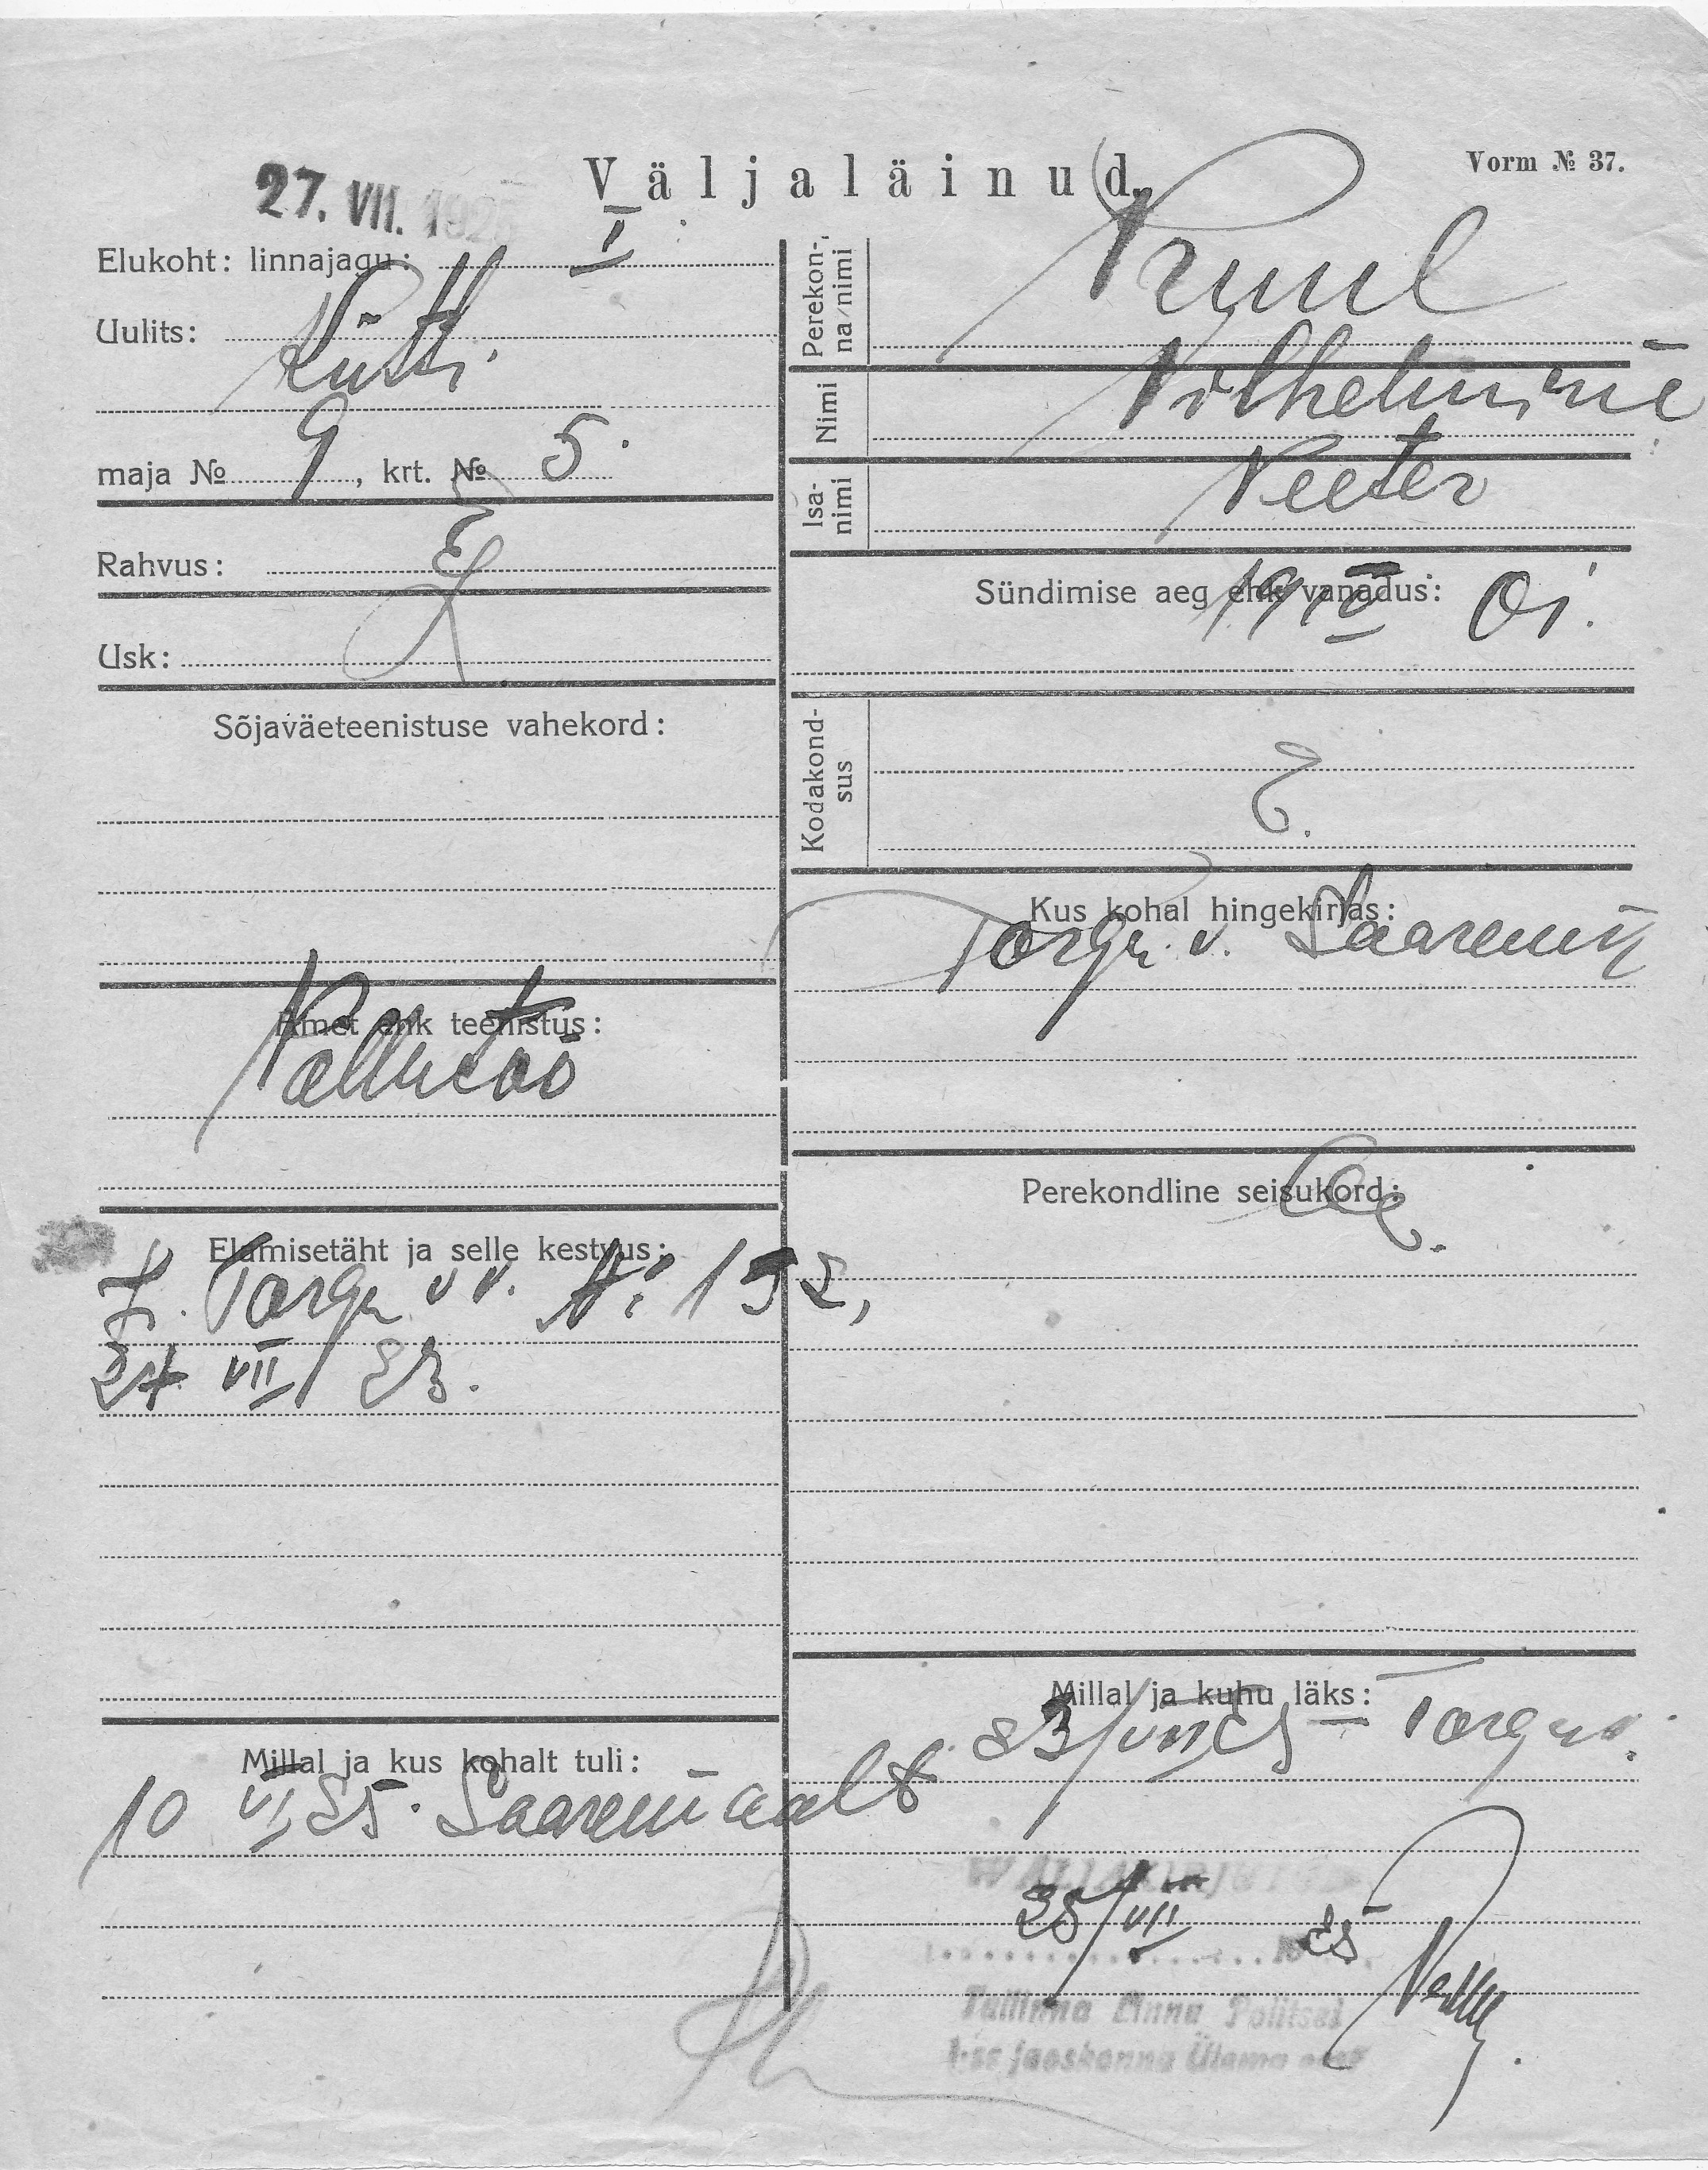 27. VII. 1925
Väljaläinud.
Vorm № 37.
Elukoht: linnajagu: I
Uulits: Kütti.
maja № 9, krt. № 5.
Rahvus: E
Usk:
Sõjaväeteenistuse vahekord:
Amet ehk teenistus:
Põllutöö
Elamisetäht ja selle kestvus:
Torgu v v. № 152,
24 VII 23.
Millal ja kus kohalt tuli:
10 VI 25. Saaremaalt
Perekon-
na/nimi
Nimi
Isa-
nimi
Peeter
Sündimise aeg ehk vanadus:
01.
Kodakond-
sus
E.
Kus kohal hingekirjas:
Torgu v. Saarem
Perekondline seisukord:
Millal ja kuhu läks:
23/VII 25 Torgu v.
25/VII 25
Tallinna Linna Politsei
jaoskonna Ülema